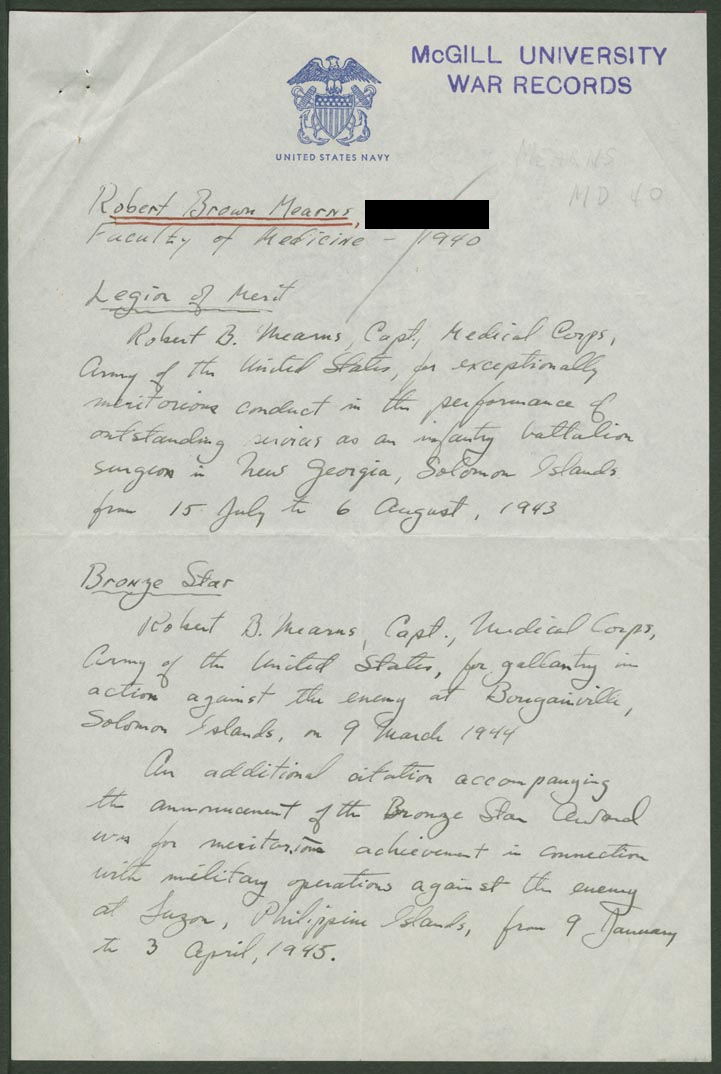 McGILL UNIVERSITY
WAR RECORDS
UNITED STATES NAVY
MEARNS
MD 40
Robert Brown Mearns,
Faculty of Medicine - 1940
Legion of Merit
Robert B. Mearns, Capt., Medical Corps,
Army of the United States, for exceptionally
meritorious conduct in the performance of
outstanding services as an infantry battalion
surgeon in New Georgia, Solomon Islands
from 15 July to 6 August, 1943
Bronze Star
Robert B. Mearns, Capt., Medical Corps,
Army of the United States, for gallantry in
action against the enemy at Bougainville,
Solomon Islands, on 9 March 1944
An additional citation accompanying
the announcement of the Bronze Star Award
was for meritorious achievement in connection
with military operations against the enemy
at Luzon, Philippine Islands, from 9 January
to 3 April, 1945.